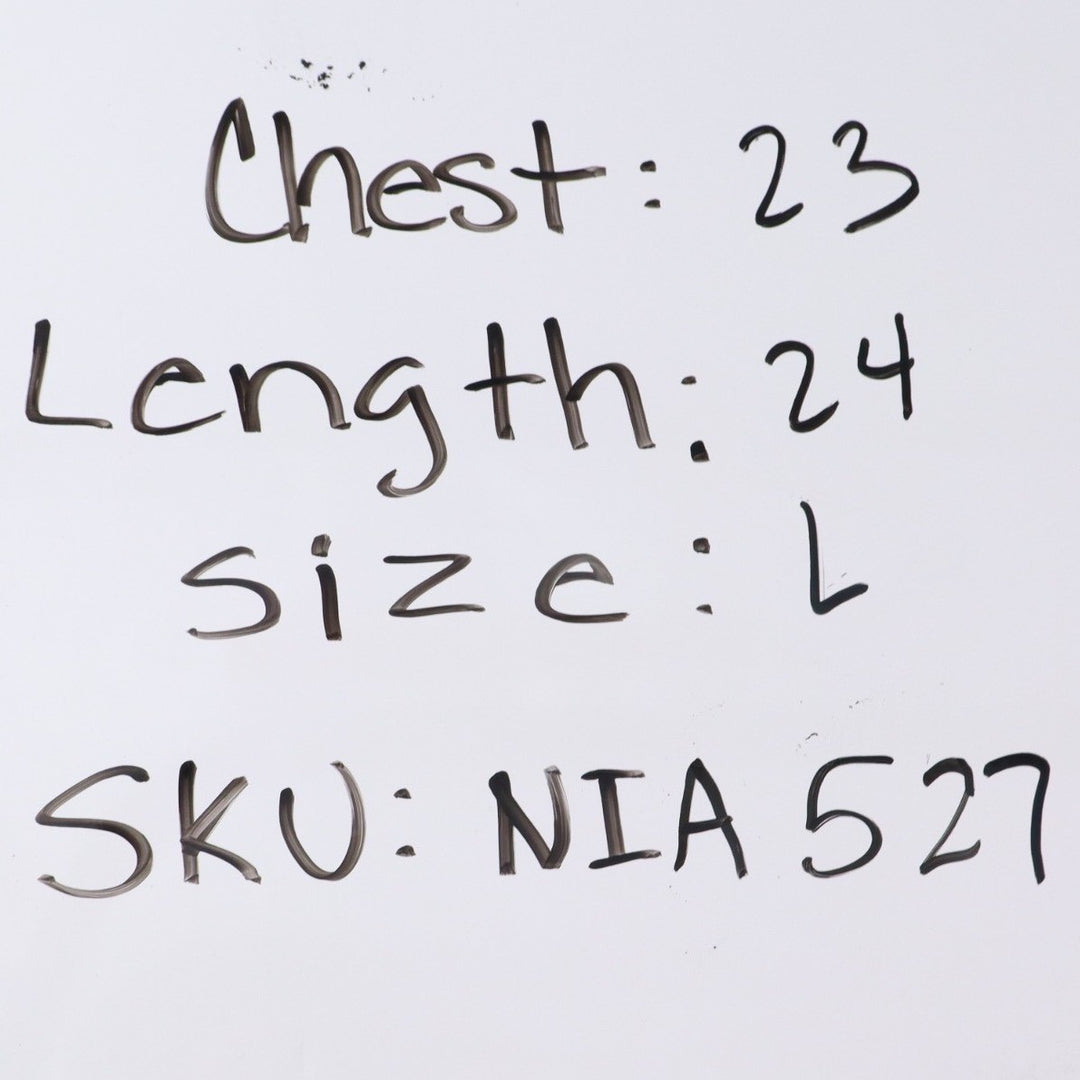 Chest: 23
Length: 24
Size: L
SKU: NIA 527